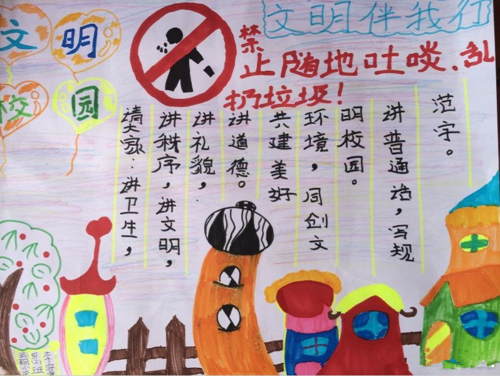 文明伴我行
文明
校园
禁
止随地吐啖、乱
扔垃圾！
请大家：讲卫生，
讲秩序，讲文明，
讲礼貌，
讲道德。
共建美好
环境，同创文
明校园。
讲普通话，写规
范字。